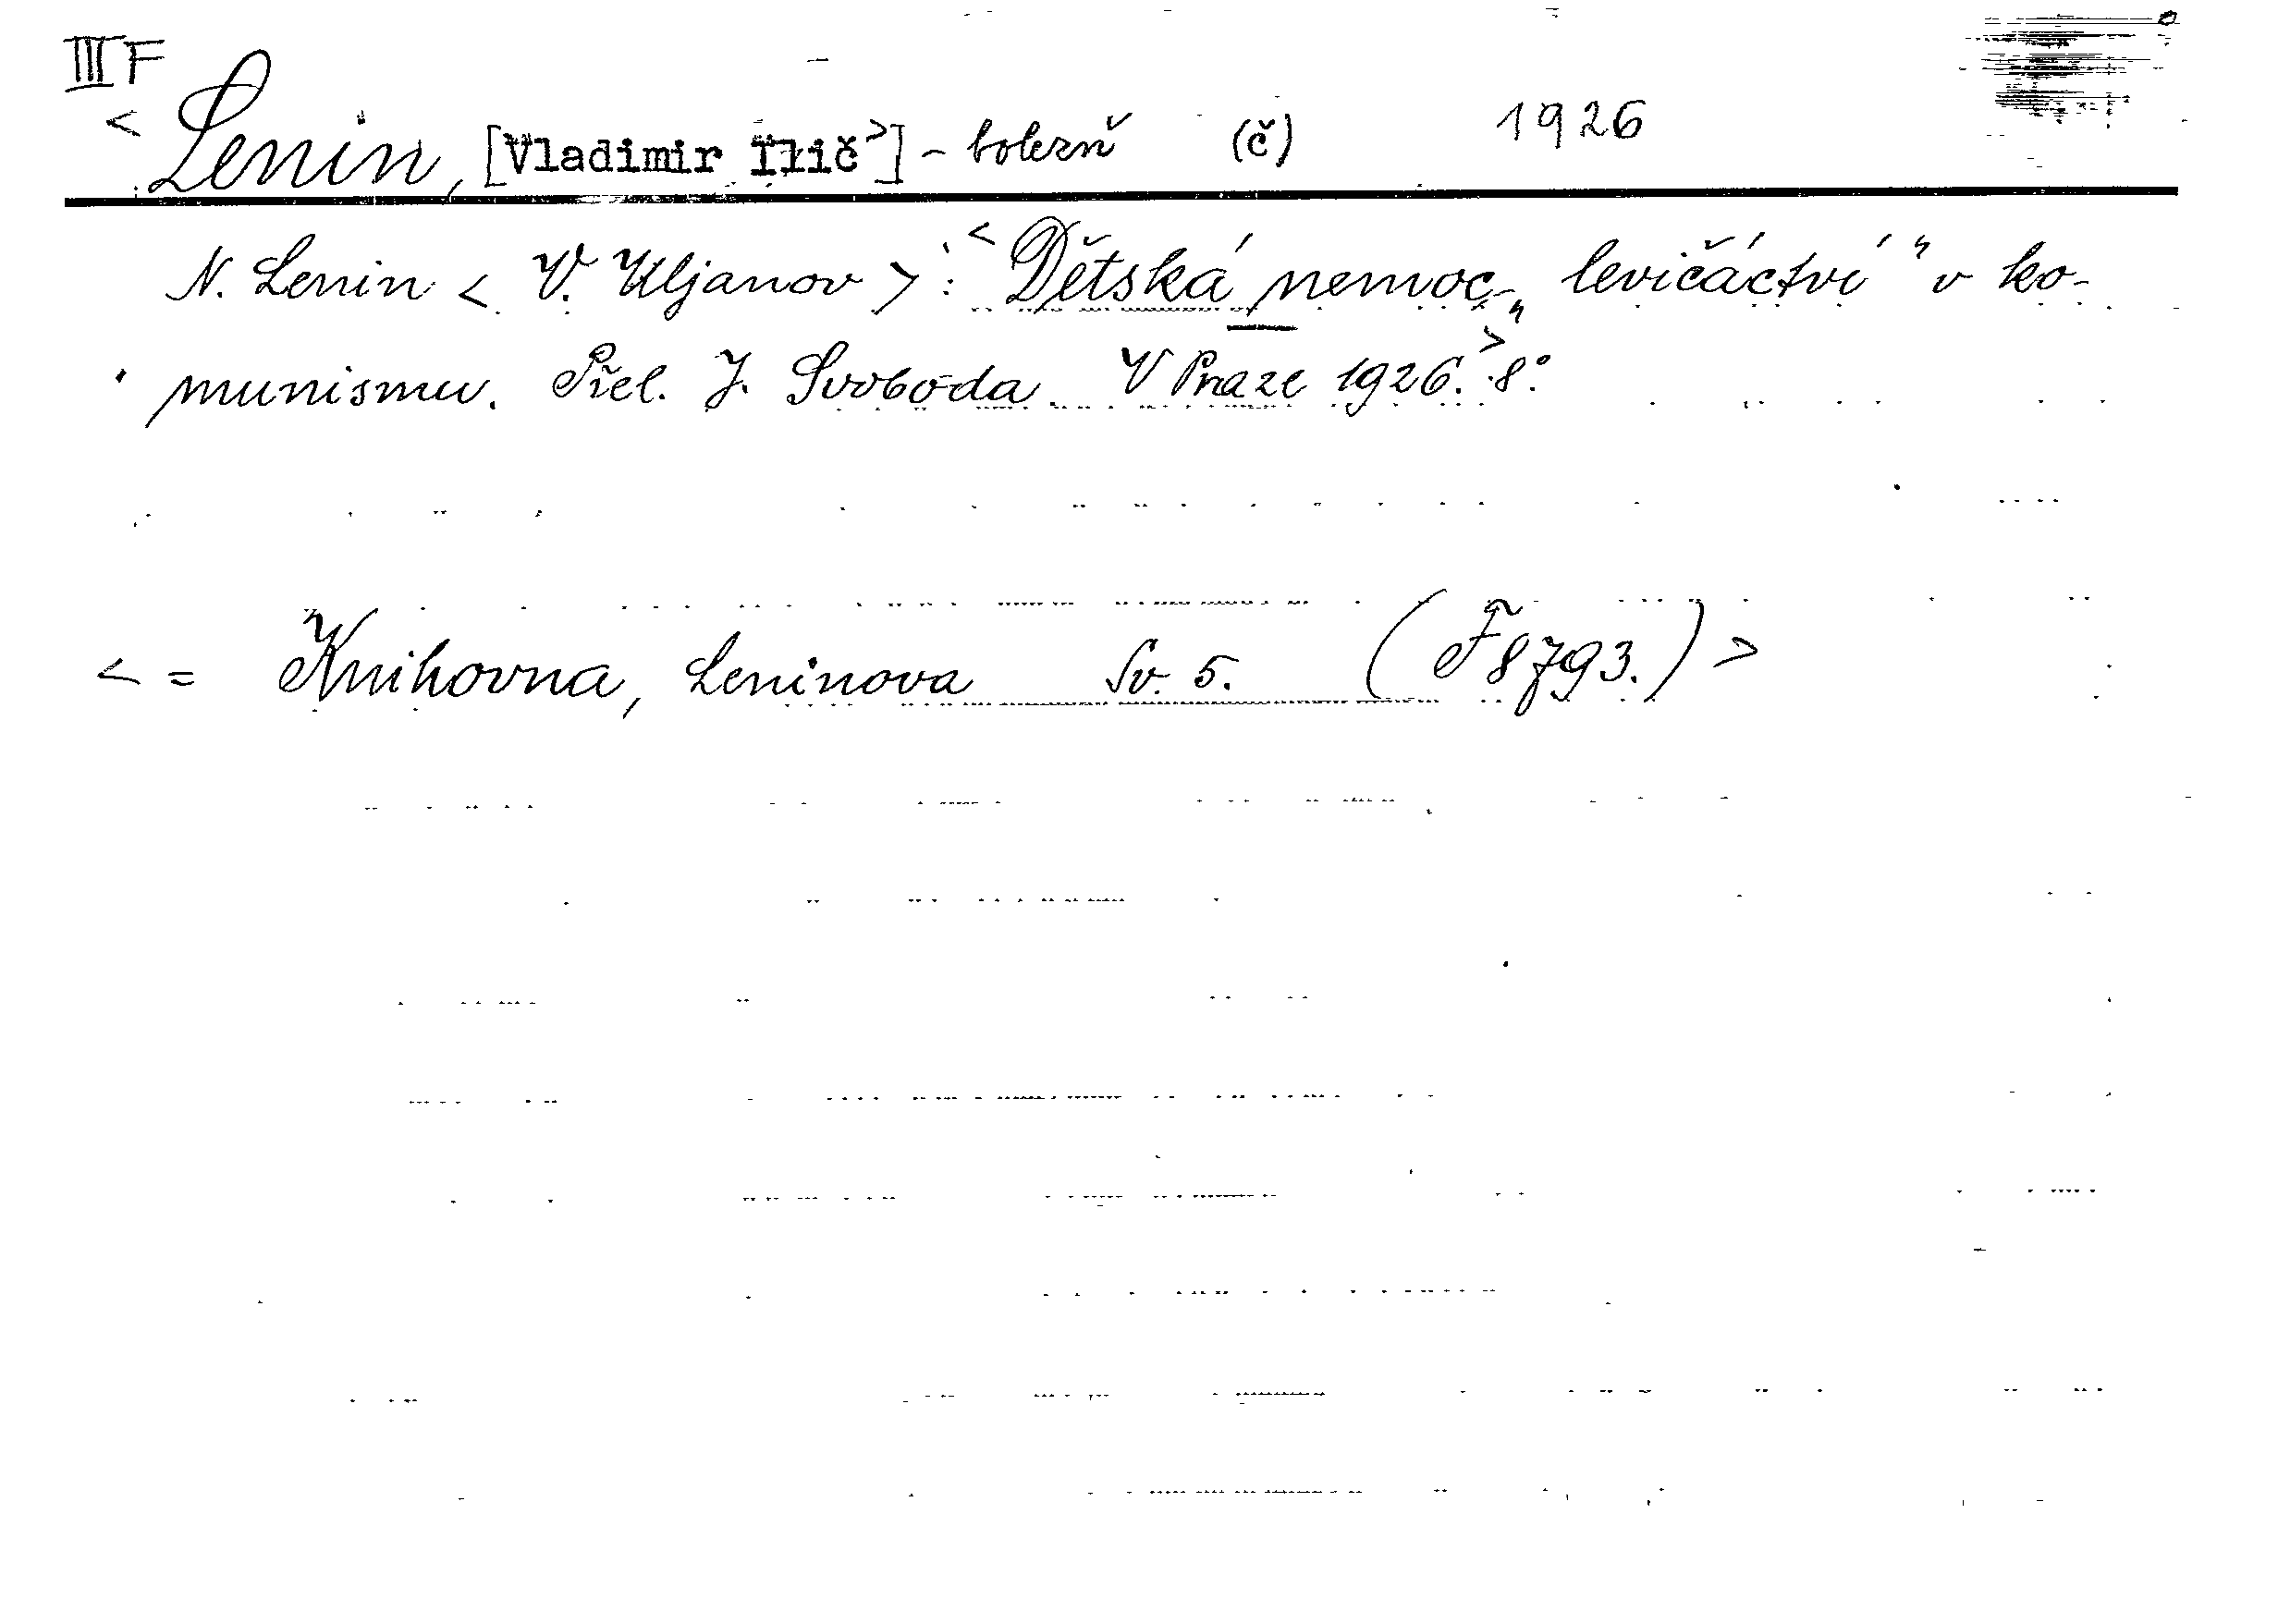 III F
< Lenin, [Vladimir Ilič>] - bolezň (č) 1926
N. Lenin < V. Uljanov >: < Dětská nemoc „levičáctví“ v ko-
munismu. Přel. J. Svoboda. V Praze 1926. > 8°.
< = Knihovna, Leninova Sv. 5. (F 8793.) >